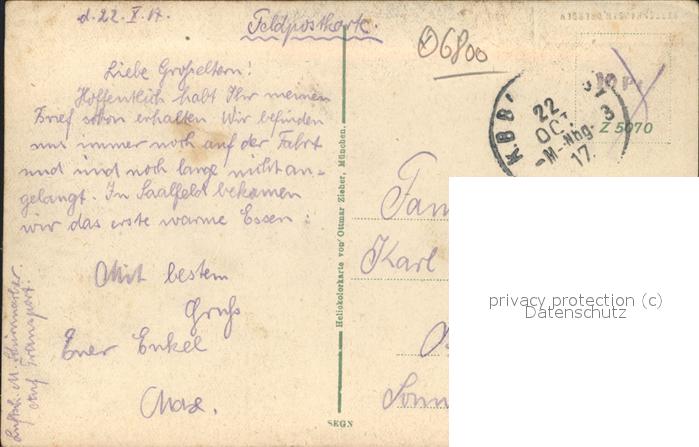 d. 22. X. 17.
Feldpostkarte.
06800
Liebe Großeltern!
Hoffentlich habt Ihr meinen
Brief schon erhalten. Wir befinden
uns immer noch auf der Fahrt
und sind noch lange nicht an-
gelangt. In Saalfeld bekamen
wir das erste warme Essen.
Mit bestem
Gruß
Euer Enkel
Max.
Auf Transport.
Heliokolorkarte von Ottmar Zieher, München.
SEGN
22
OCT
3
-M-Nbg-
17.
10 Pf
Z 5070
Fam
Karl
Sonn
privacy protection (c)
Datenschutz